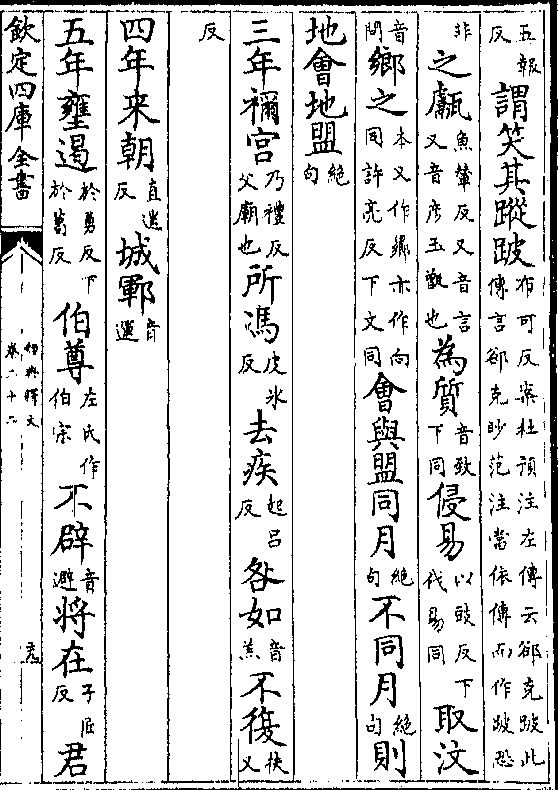 五報反謂笑其蹤跛布可反案杜預注左傳云郤克跛此傳言郤克眇范注當依傳而作跛恐
非之甗魚輦反又音言又音彦玉甑也為質音致下同侵易以豉反下伐易同取汶
音問鄉之本又作嚮亦作向同許亮反下文同會與盟同月絶句不同月絶句則
地會地盟絶句
三年禰宫乃禮反父廟也所馮皮氷反去疾起吕反咎如音羔不復扶又
反
四年来朝直遥反城鄆音運
五年壅遏於勇反下於葛反伯尊左氏作伯宗不辟音避將在子匠反君
欽定四庫全書 經典釋文 卷二十二